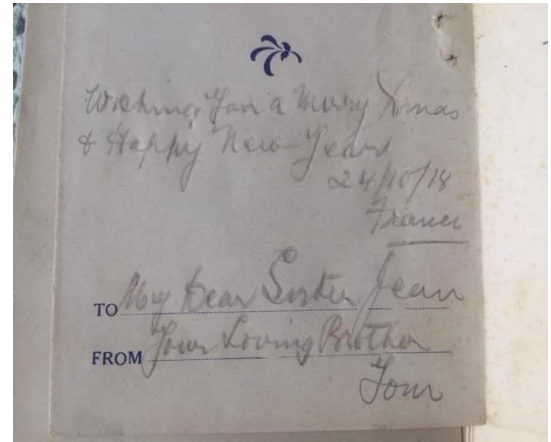 Wishing You a Merry Xmas
& Happy New Year
24/10/18
France
TO My Dear Sister Jean
FROM Your Loving Brother
Tom